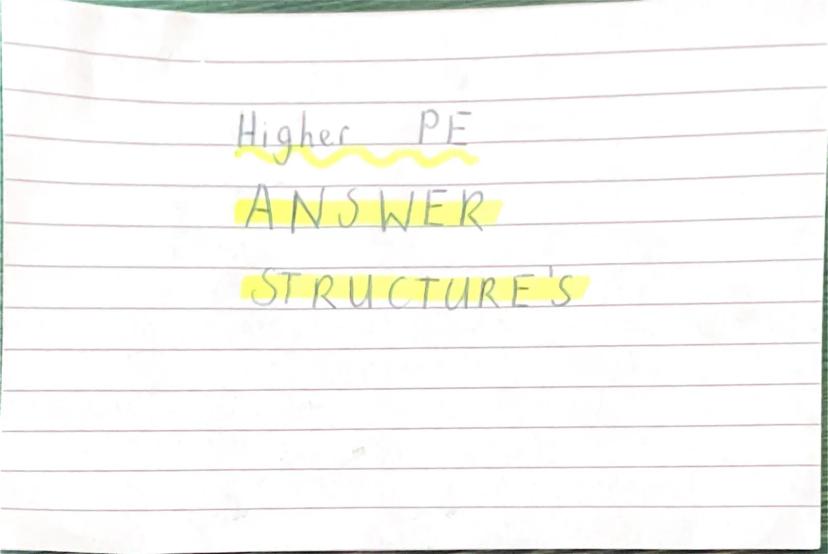 Higher PE
ANSWER
STRUCTURE'S